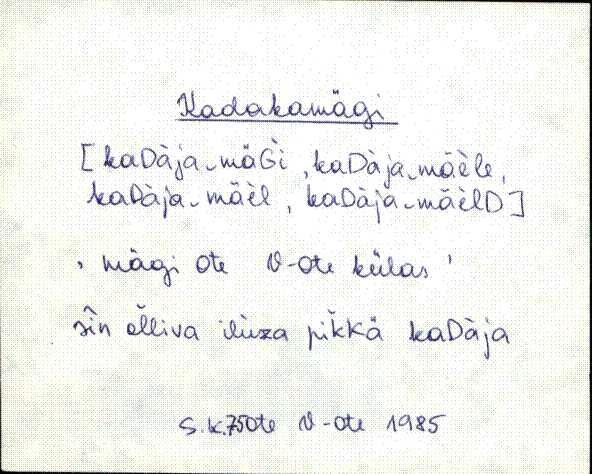 Kadakamägi
[kaDàja-mäG̀i, kaDàja-mäèle,
kaDàja-mäèl, kaDàja-mäèlD]
' mägi Ote V-Ote külas '
sîn õlliva ilùza pìkKä kaDàja
S.k.75 Ote V-Ote 1985